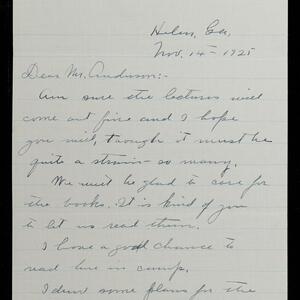 Helen, Ga.
Nov. 14 - 1925
Dear Mr. Anderson:-
Am sure the lectures will
come out fine and I hope
you will, though it must be
quite a strain - so many.
We will be glad to care for
the books. It is kind of you
to let us read them.
I have a good chance to
read here in camp.
I sent some plans for the